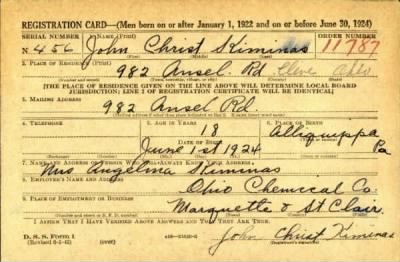 REGISTRATION CARD—(Men born on or after January 1, 1922 and on or before June 30, 1924)
SERIAL NUMBER 1. NAME (Print) ORDER NUMBER
N 456 John Christ Kiminas 11787
2. PLACE OF RESIDENCE (Print)
982 Ansel Rd Cleve Ohio
[THE PLACE OF RESIDENCE GIVEN ON THE LINE ABOVE WILL DETERMINE LOCAL BOARD
JURISDICTION; LINE 2 OF REGISTRATION CERTIFICATE WILL BE IDENTICAL]
3. MAILING ADDRESS
982 Ansel Rd.
4. TELEPHONE 5. AGE IN YEARS 6. PLACE OF BIRTH
18 Alliquippa
DATE OF BIRTH
June 1st 1924 Pa
7. NAME AND ADDRESS OF PERSON WHO WILL ALWAYS KNOW YOUR ADDRESS
Mrs Angelina Kiminas
8. EMPLOYER'S NAME AND ADDRESS
Ohio Chemccal Co.
9. PLACE OF EMPLOYMENT OR BUSINESS
Marquette & St Clair.
I AFFIRM THAT I HAVE VERIFIED ABOVE ANSWERS AND THAT THEY ARE TRUE.
D. S. S. Form 1 (over)
John Christ Kiminas